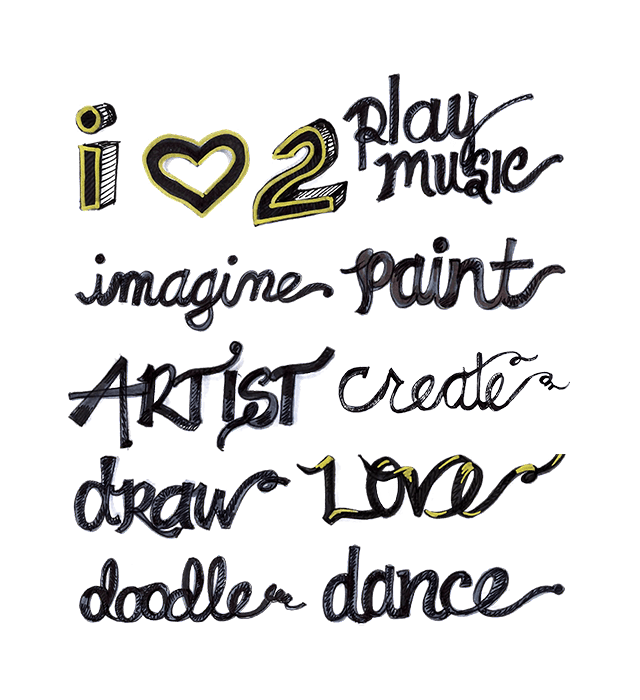 i ♥ 2 play
music
imagine paint
ARTIST create
draw LOVE
doodle dance